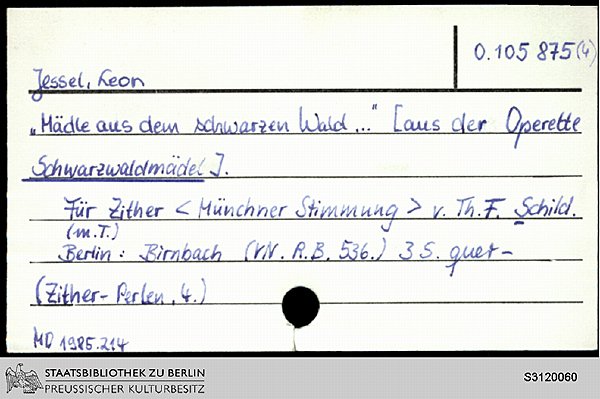 O.105 875(4)
Jessel, Leon
„Mädle aus dem schwarzen Wald..." [aus der Operette
Schwarzwaldmädel].
Für Zither <Münchner Stimmung> v. Th. F. Schild.
(m.T.)
Berlin: Birnbach (VN. R.B. 536.) 3 S. quer-
(Zither-Perlen, 4.)
MD 1985.214
STAATSBIBLIOTHEK ZU BERLIN
PREUSSISCHER KULTURBESITZ
S3120060